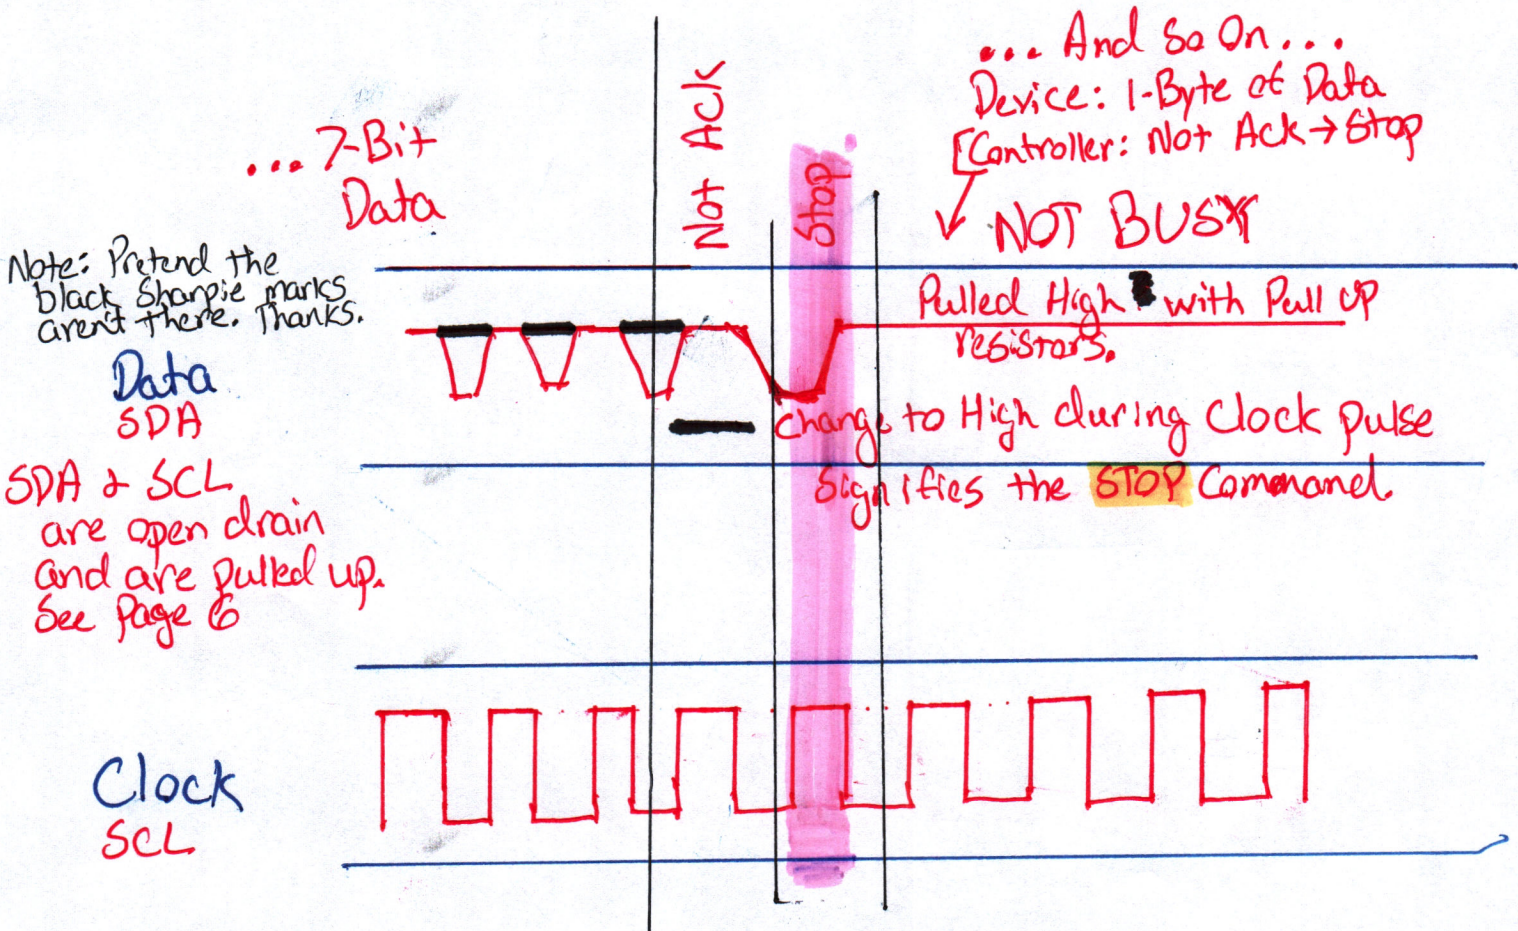 ... And So On...
Device: 1-Byte of Data
[Controller: Not Ack → Stop
NOT BUSY
... 7-Bit
Data
Not Ack
Stop
Note: Pretend the
black Sharpie marks
aren't there. Thanks.
Pulled High with Pull UP
resistors.
Data
SDA
Change to High during Clock pulse
Signifies the STOP Command.
SDA & SCL
are open drain
and are pulled up.
See Page 6
Clock
SCL